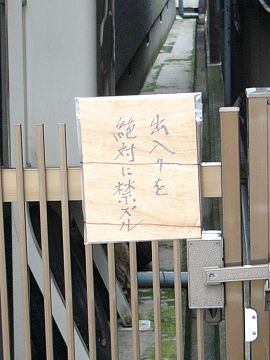 出入りを
絶対に禁ズル